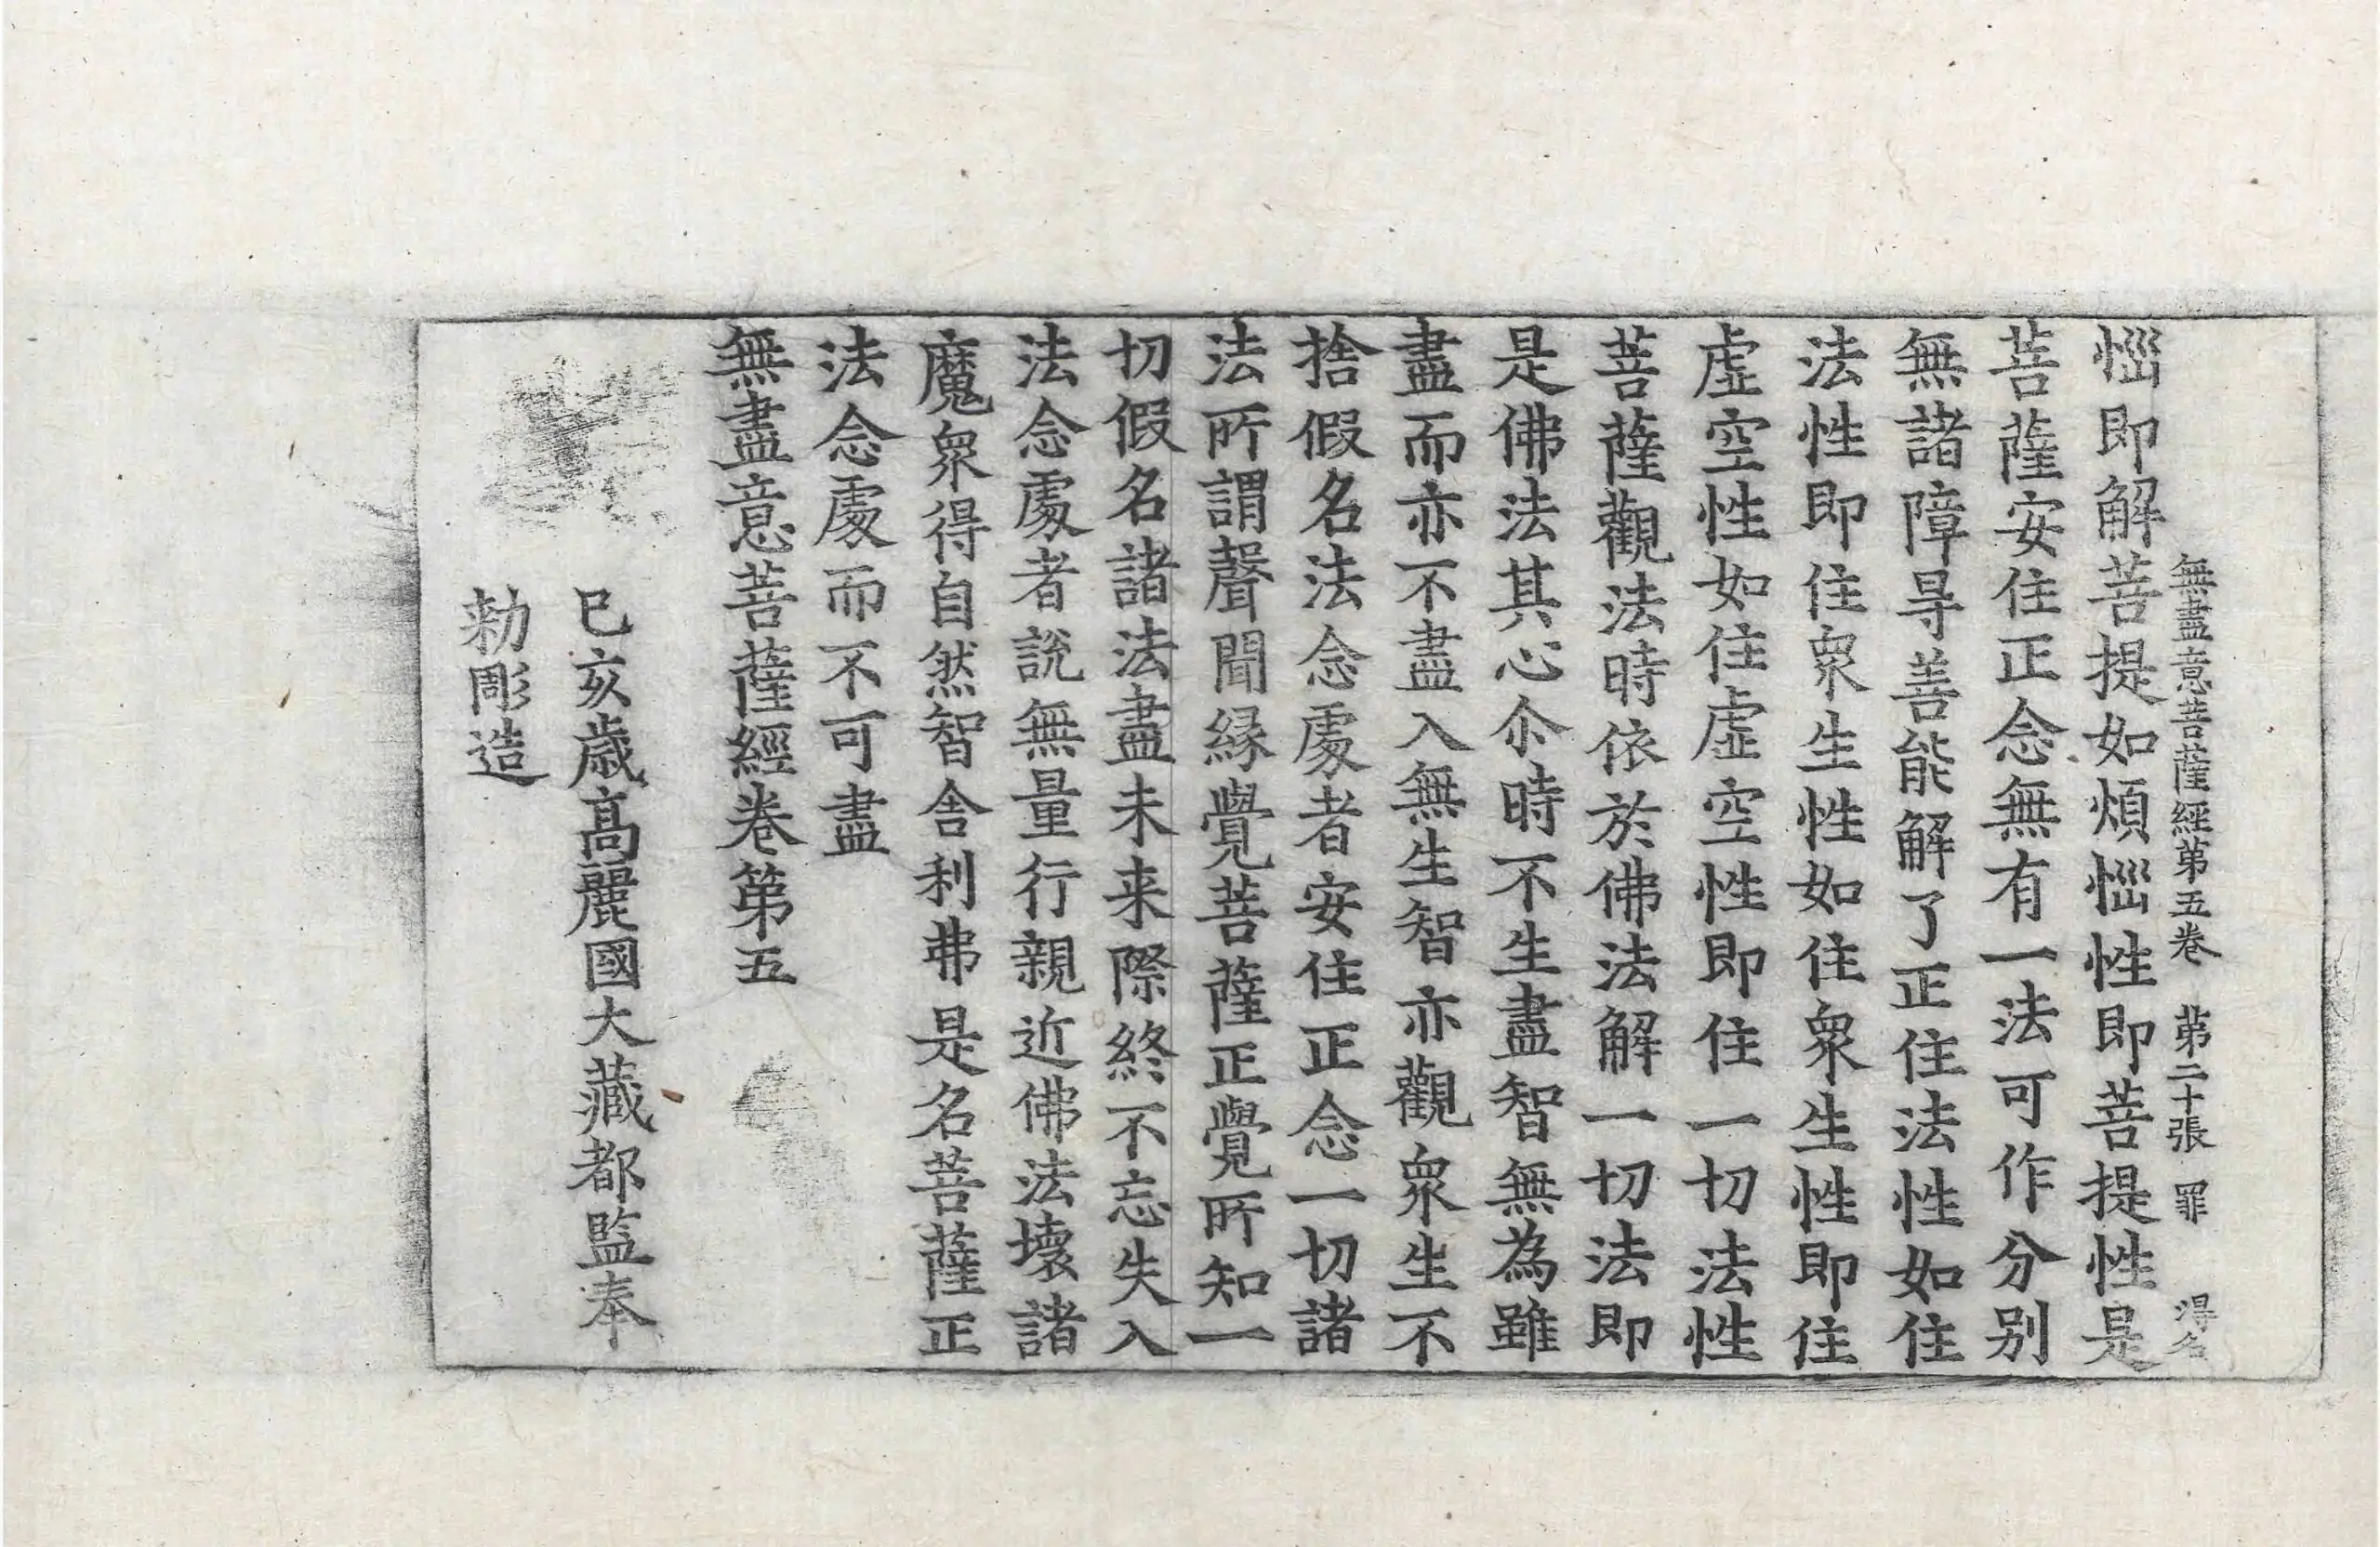 無盡意菩薩經第五卷 第二十張 罪 得名
惱即解菩提如煩惱性即菩提性是
菩薩安住正念無有一法可作分別
無諸障㝵善能解了正住法性如住
法性即住衆生性如住衆生性即住
虛空性如住虛空性即住一切法性
菩薩觀法時依於佛法解一切法即
是佛法其心尒時不生盡智無為雖
盡而亦不盡入無生智亦觀衆生不
捨假名法念處者安住正念一切諸
法所謂聲聞緣覺菩薩正覺所知一
切假名諸法盡未来際終不忘失入
法念處者說無量行親近佛法壞諸
魔衆得自然智舍利弗是名菩薩正
法念處而不可盡
無盡意菩薩經卷第五
己亥歲高麗國大藏都監奉
勑彫造